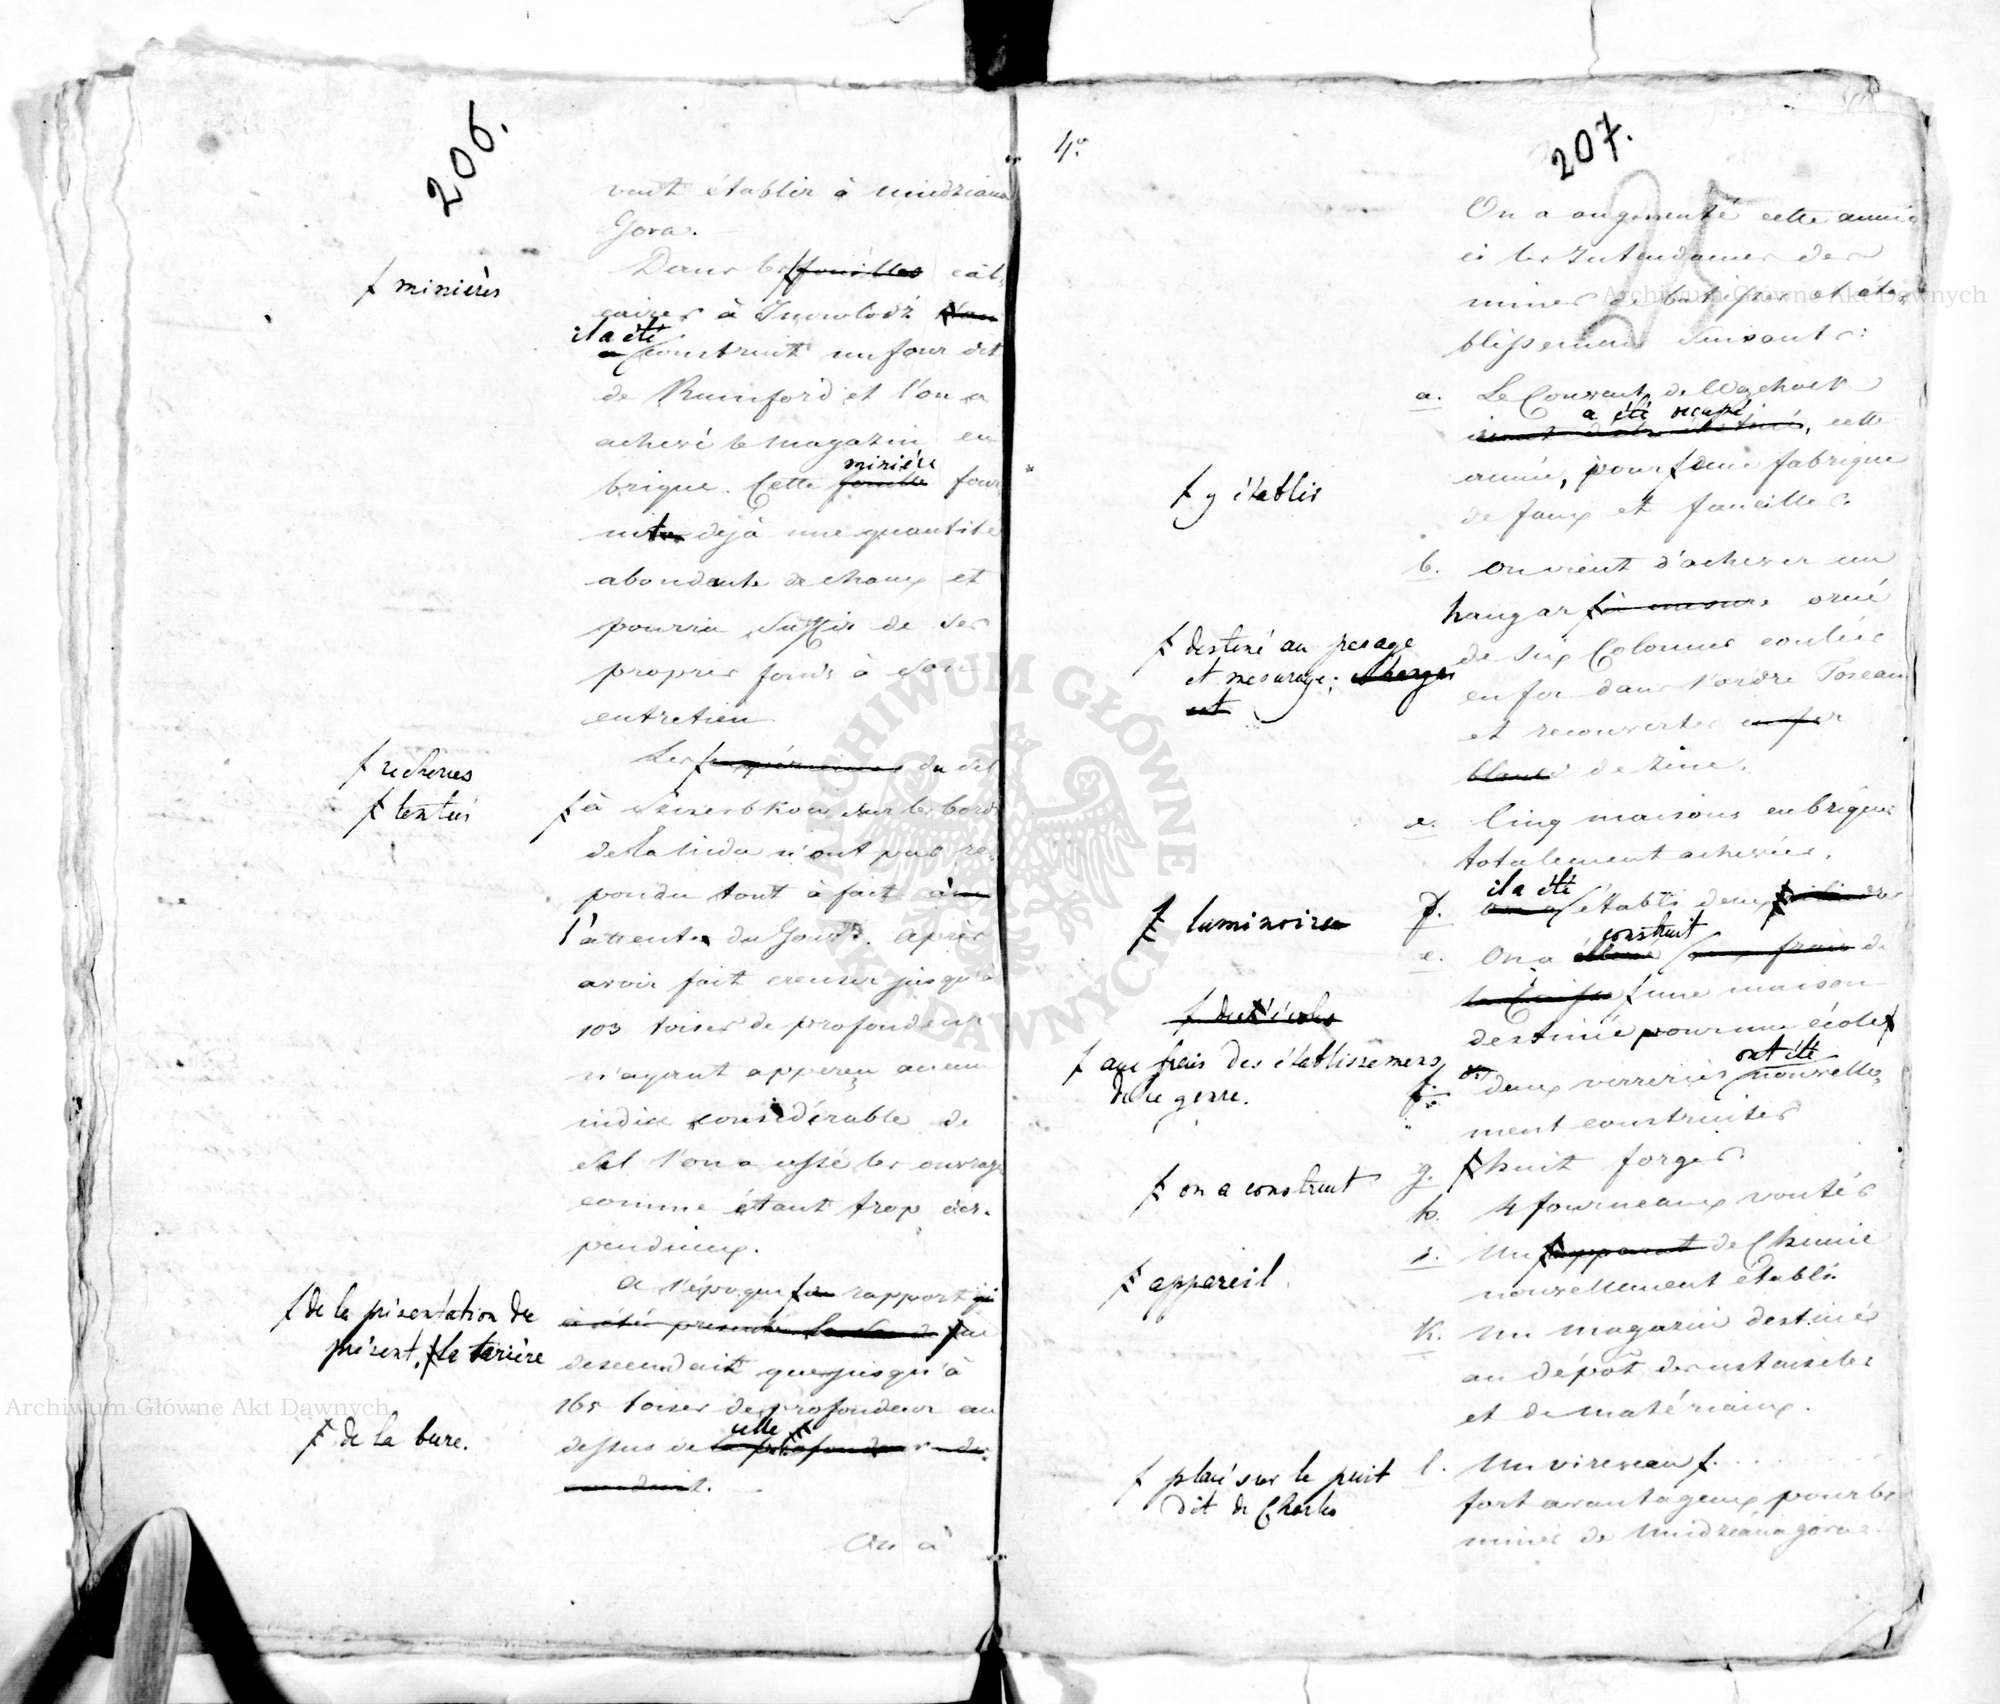 206.
vaut établir à Miedziana
Gora.
Dans les fouilles cal-
ƒ minières
caires à Inowlodz
il a été
construit un four dit
de Rumford et l'on a
achevé le magazin en
minière
brique. Cette fouille four
nit déjà une quantité
abondante de chaux et
pourra suffir de ses
propres fonds à son
entretien
Les expériences du sel
ƒ recherches
ƒ tentées
ƒ à Szczerbkow sur les bords
de la Nida n'ont pas re-
pondu tout à fait à
l'attente du Gouvt. Après
avoir fait creuser jusqu'à
103 toises de profondeur
n'ayant apperçu aucun
indice considérable de
sel l'on a cessé les ouvrages
comme étant trop dis-
pendieux.
A l'époque ƒ rapport
ƒ de la présentation du
présent, ƒ la tarière
a été présenté
descendait que jusqu'à
165 toises de profondeur au
celle ƒ
dessus de la profondeur
ƒ de la bure.
On a
4°
207.
On a augmenté cette année
ci les Intendances des
mines de batisses et éta-
blissemens suivants:
a. Le Couvent de Wąchock
a été occupé
cette
année, pour ƒ une fabrique
ƒ y établir
de faux et faucilles.
b. On vient d'achever un
hangar ƒ à mesure orné
ƒ destiné au pesage
et mesurage;
de six Colonnes coulées
en fer dans l'ordre Toscan
et recouvertes en fer
blanc de zinc.
c. Cinq maisons en briques
totalement achevées.
il a été
d. établi deux ƒ cilindres
ƒ luminoires
construit
e. On a ƒ aux frais de
la Caisse ƒ une maison
destinée pour une école ƒ
ƒ aux frais des établissemens
de ce genre.
ont été
f. deux verreries nouvelle-
ment construites
g. ƒ huit forges.
ƒ on a construit
h. 4 fourneaux voutés
i. Un ƒ apparat de Chimie
ƒ appareil.
nouvellement établi
K. Un magazin destiné
au dépôt des ustensiles
et de matériaux.
l. Un vireveau ƒ.
ƒ placé sur le puit
dit de Charles
fort avantageux pour les
mines de Miedziana góra.
Archiwum Główne Akt Dawnych
ARCHIWUM GŁÓWNE AKT DAWNYCH
Archiwum Główne Akt Dawnych